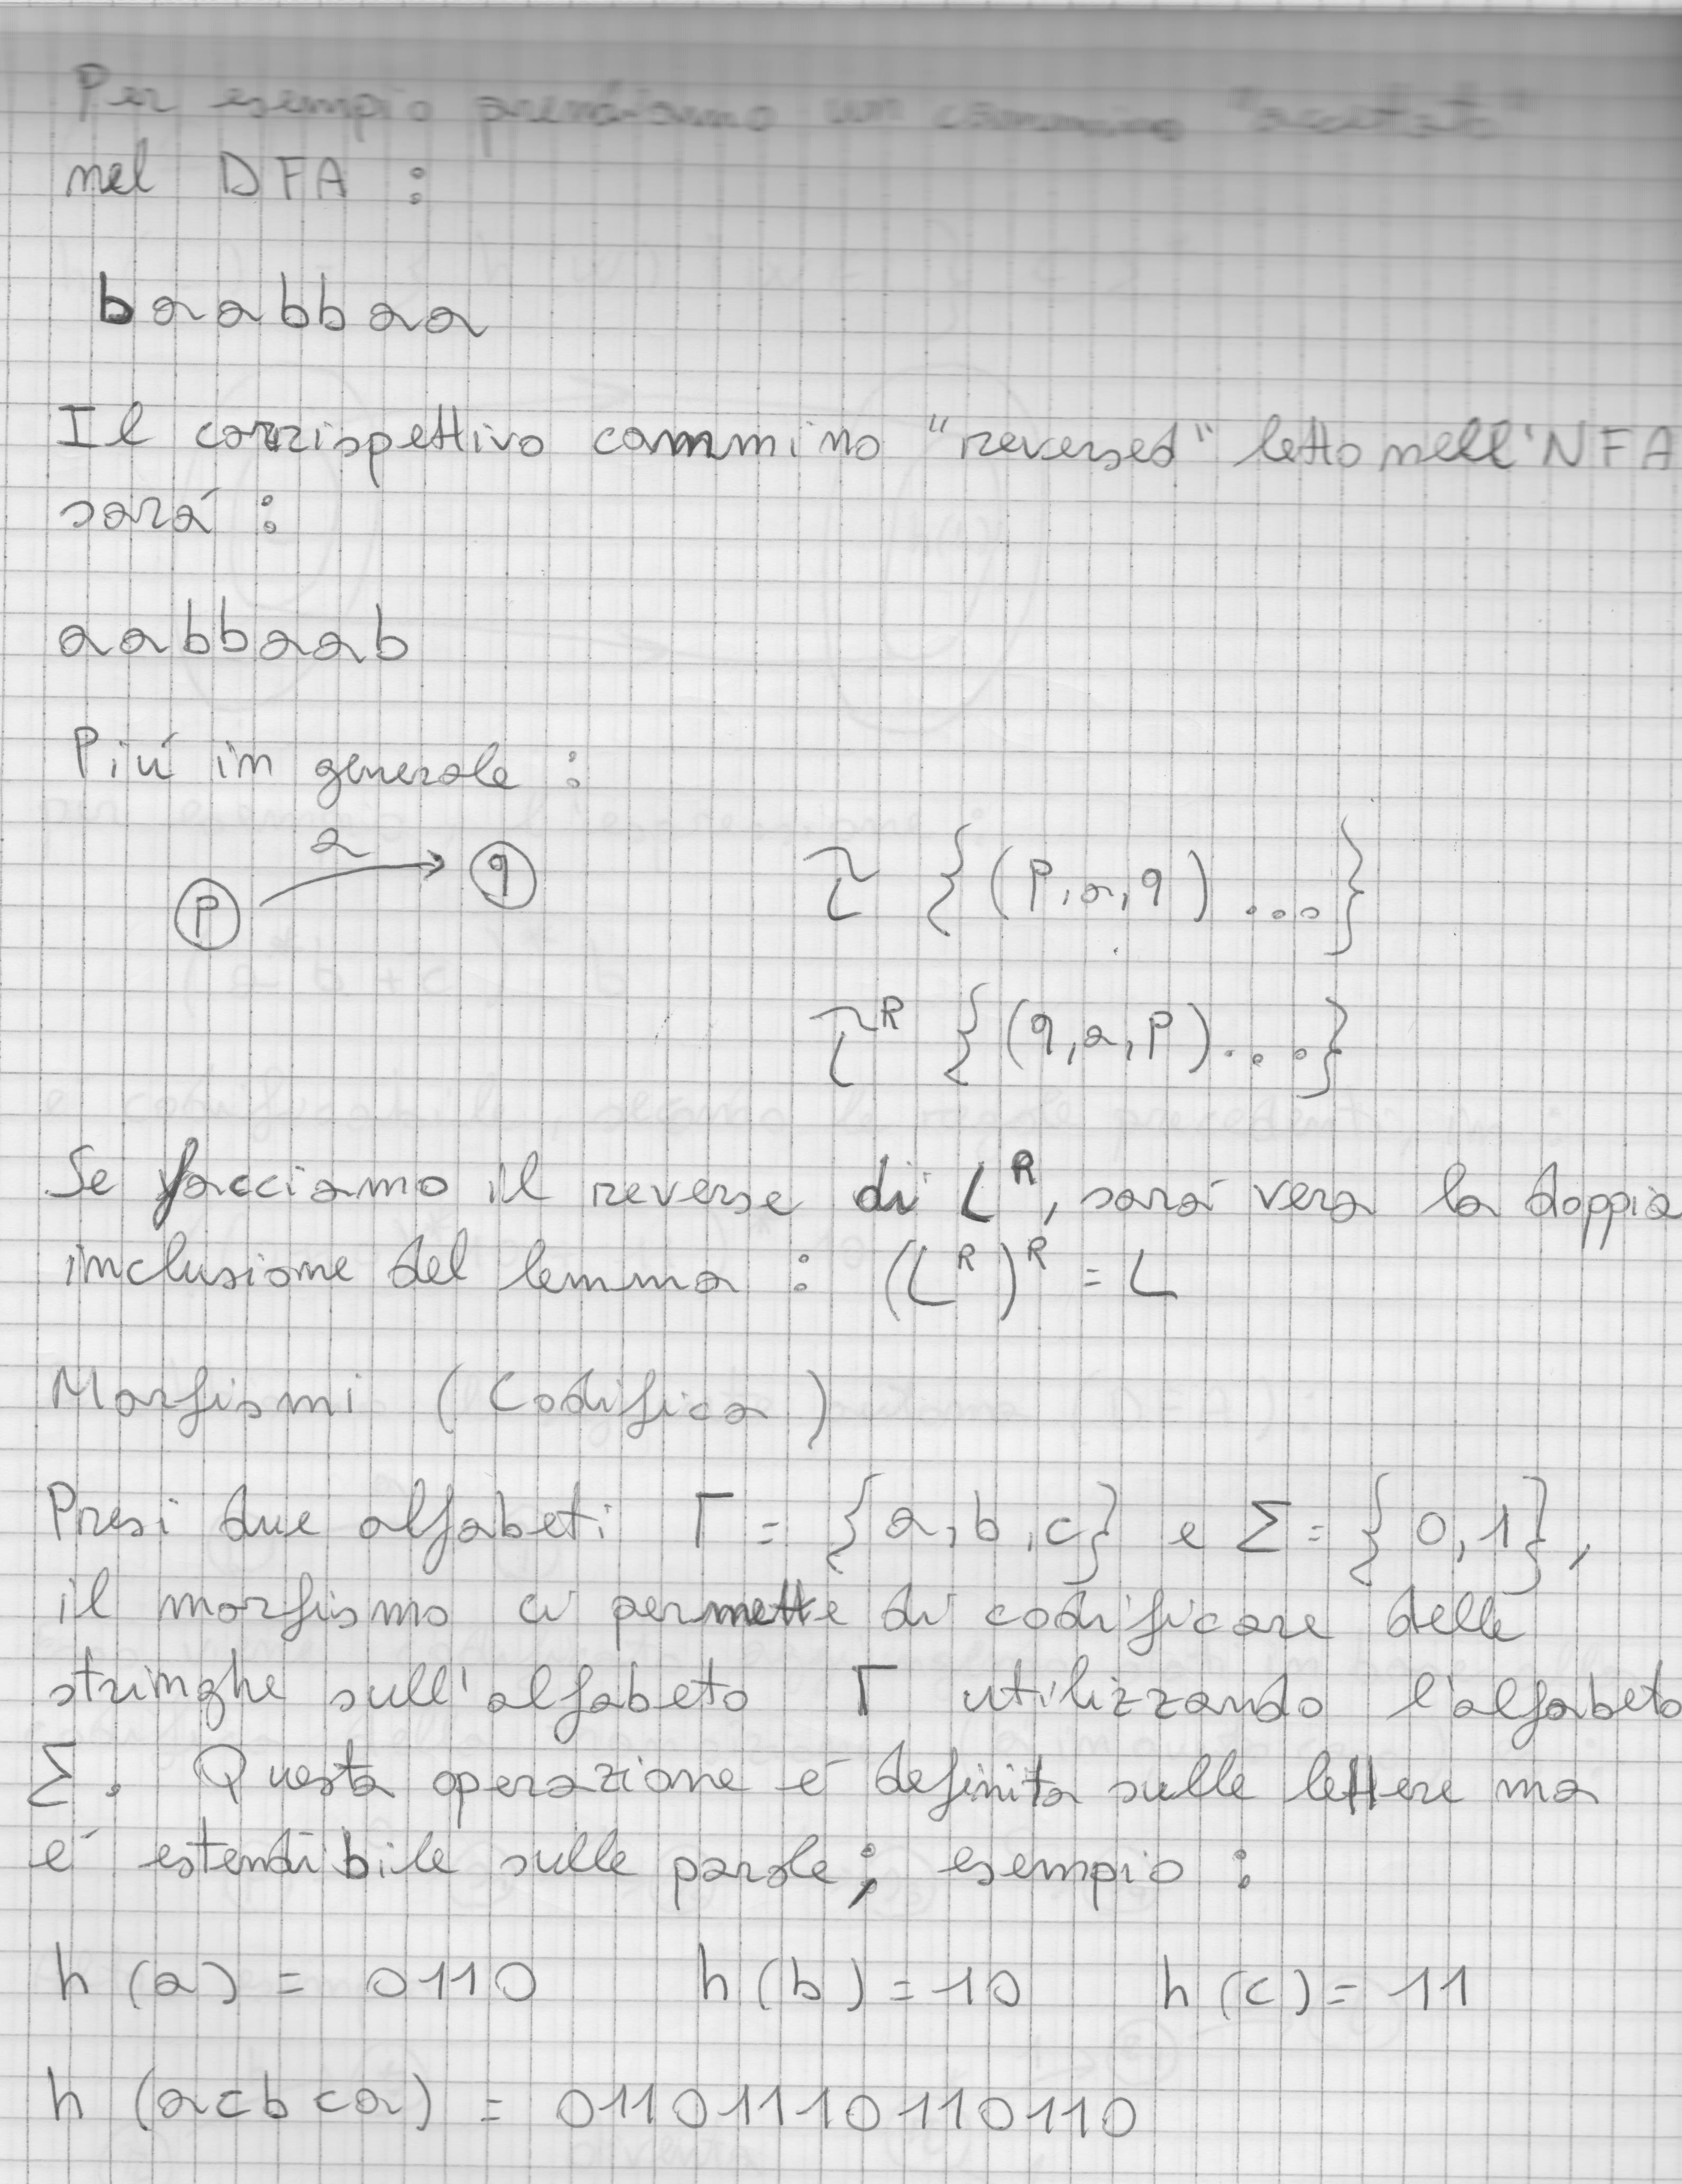 Per esempio prendiamo un cammino "accettato"
nel DFA :
baabbaa
Il corrispettivo cammino "reversed" letto nell'NFA
sará :
aabbaab
Piú in generale :
a
p q τ {(p,a,q)...}
τᴿ {(q,a,p)....}
Se facciamo il reverse di Lᴿ, sará vera la doppia
inclusione del lemma : (Lᴿ)ᴿ = L
Morfismi (Codifica)
Presi due alfabeti Γ = {a,b,c} e Σ = {0,1},
il morfismo ci permette di codificare delle
stringhe sull'alfabeto Γ utilizzando l'alfabeto
Σ. Questa operazione é definita sulle lettere ma
é estendibile sulle parole; esempio :
h (a) = 0110 h (b) = 10 h (c) = 11
h (acbca) = 01101110110110